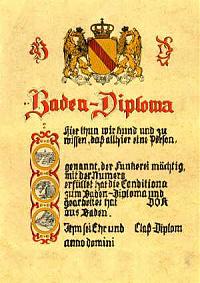 Baden-Diploma
Hier thun wir kund und zu
wissen, daß allhier eine Person,
genannt, der Funkerei mächtig,
mit der Numero
erfüllet hat die Conditiona
zum Baden-Diploma und
gearbeitet hat DOK
aus Baden.
Ihm sei Ehr und Claß-Diplom
anno domini